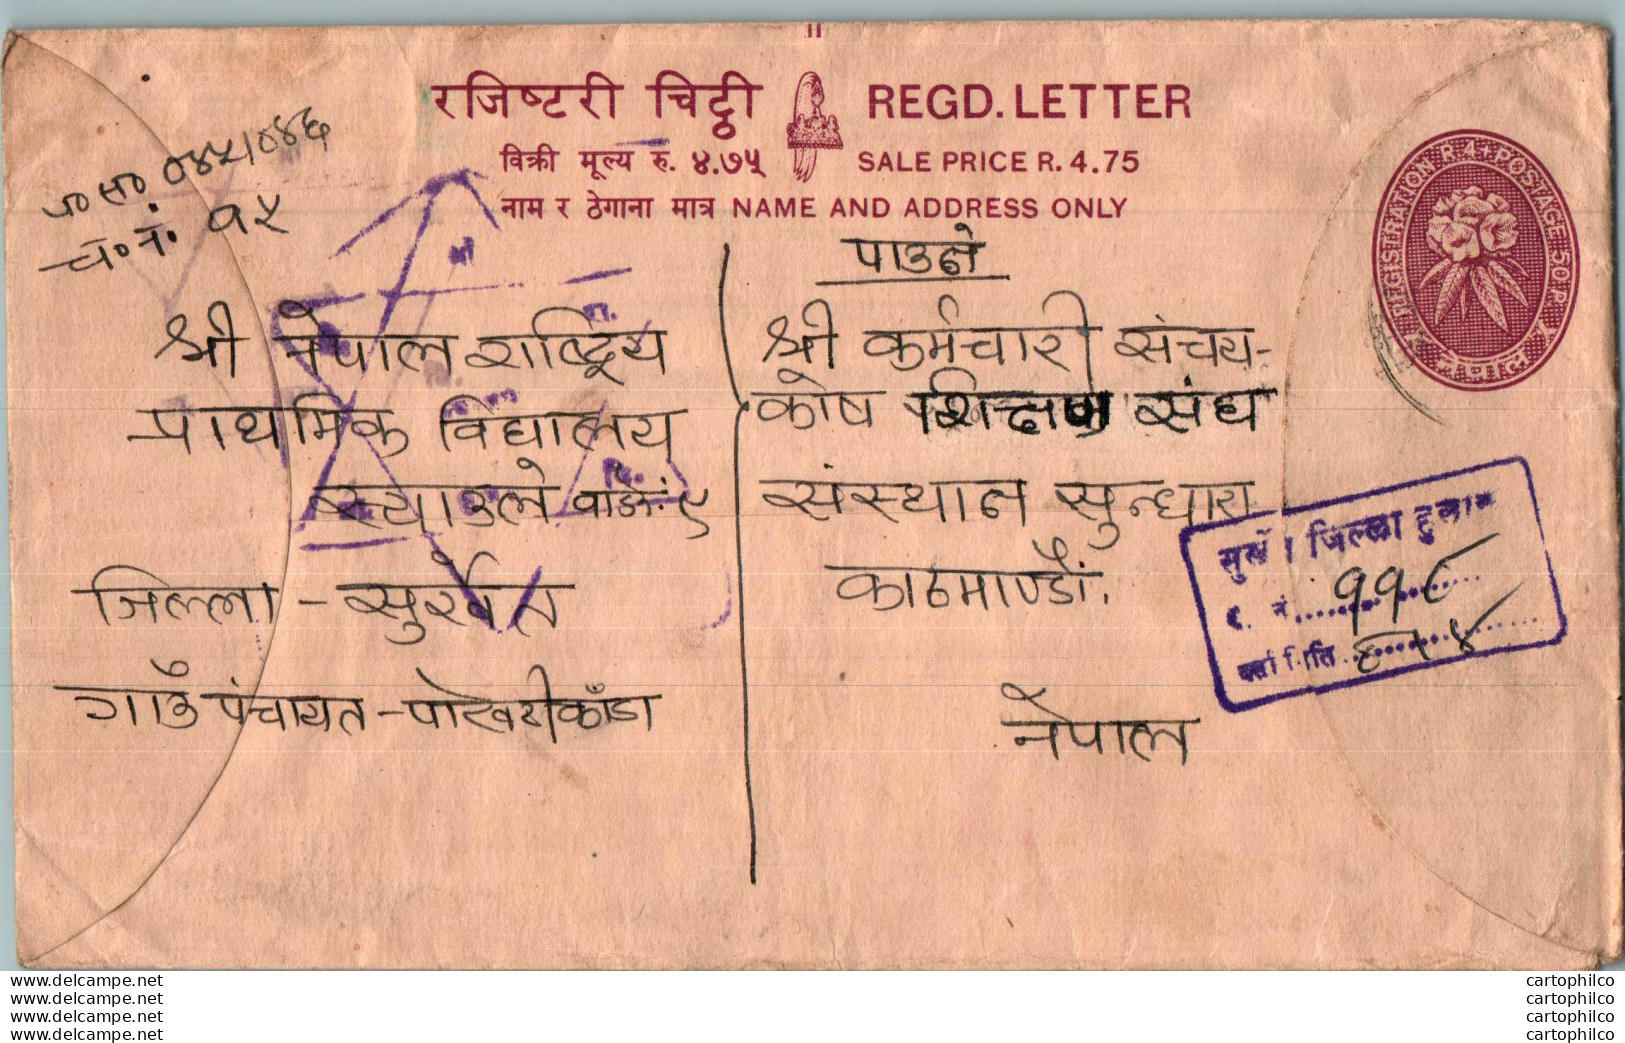 रजिष्टरी चिट्ठी REGD. LETTER
विक्री मूल्य रु. ४.७५ SALE PRICE R. 4.75
नाम र ठेगाना मात्र NAME AND ADDRESS ONLY
REGISTRATION R.4 + POSTAGE 50 P.
नेपाल
प० स० ०४५।०४६
च० नं. १५
श्री नेपाल राष्ट्रिय
प्राथमिक विद्यालय
स्याउले वार्ड नं. ९
जिल्ला - सुर्खेत
गाउँ पंचायत - पोखरीकाँडा
पाउने
श्री कर्मचारी संचय-
कोष शिक्षण संघ
संस्थान सुन्धारा
काठमाण्डौं.
नेपाल
सुर्खेत जिल्ला हुलाक
द. नं. ११८
दर्ता मिति
www.delcampe.net cartophilco
www.delcampe.net cartophilco
www.delcampe.net cartophilco
www.delcampe.net cartophilco